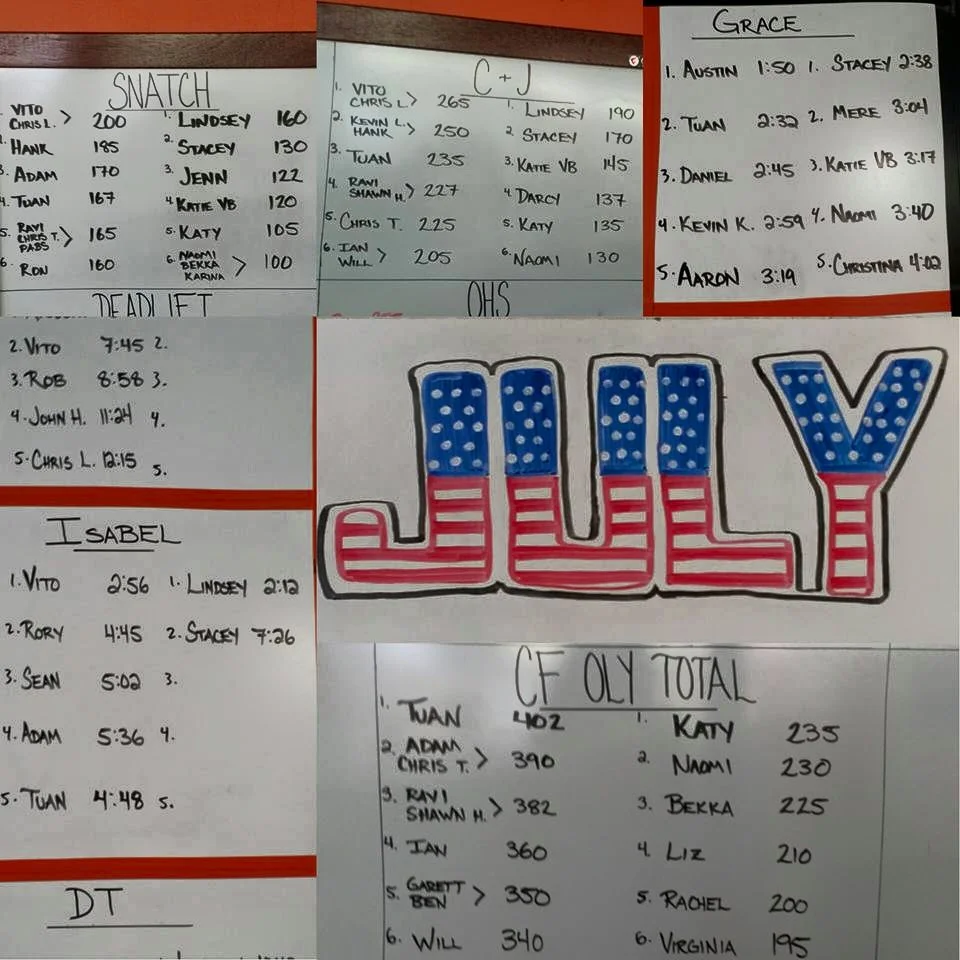 SNATCH
VITO
CHRIS L. > 200 1. LINDSEY 160
HANK 185 2. STACEY 130
3. ADAM 170 3. JENN 122
4. TUAN 167 4. KATIE VB 120
5. RAVI
CHRIS T.
PABS > 165 5. KATY 105
6. RON 160 6. NAOMI
BEKKA
KARINA > 100
DEADLIFT
C + J
1. VITO
CHRIS L. > 265 1. LINDSEY 190
2. KEVIN L.
HANK > 250 2. STACEY 170
3. TUAN 235 3. KATIE VB 145
4. RAVI
SHAWN H. > 227 4. DARCY 137
5. CHRIS T. 225 5. KATY 135
6. IAN
WILL > 205 6. NAOMI 130
OHS
GRACE
1. AUSTIN 1:50 1. STACEY 2:38
2. TUAN 2:32 2. MERE 3:04
3. DANIEL 2:45 3. KATIE VB 3:17
4. KEVIN K. 2:59 4. NAOMI 3:40
5. AARON 3:19 5. CHRISTINA 4:02
2. VITO 7:45 2.
3. ROB 8:58 3.
4. JOHN H. 11:24 4.
5. CHRIS L. 12:15 5.
ISABEL
1. VITO 2:56 1. LINDSEY 2:12
2. RORY 4:45 2. STACEY 7:26
3. SEAN 5:02 3.
4. ADAM 5:36 4.
5. TUAN 4:48 5.
DT
JULY
CF OLY TOTAL
1. TUAN 402 1. KATY 235
2. ADAM
CHRIS T. > 390 2. NAOMI 230
3. RAVI
SHAWN H. > 382 3. BEKKA 225
4. IAN 360 4. LIZ 210
5. GARETT
BEN > 350 5. RACHEL 200
6. WILL 340 6. VIRGINIA 195